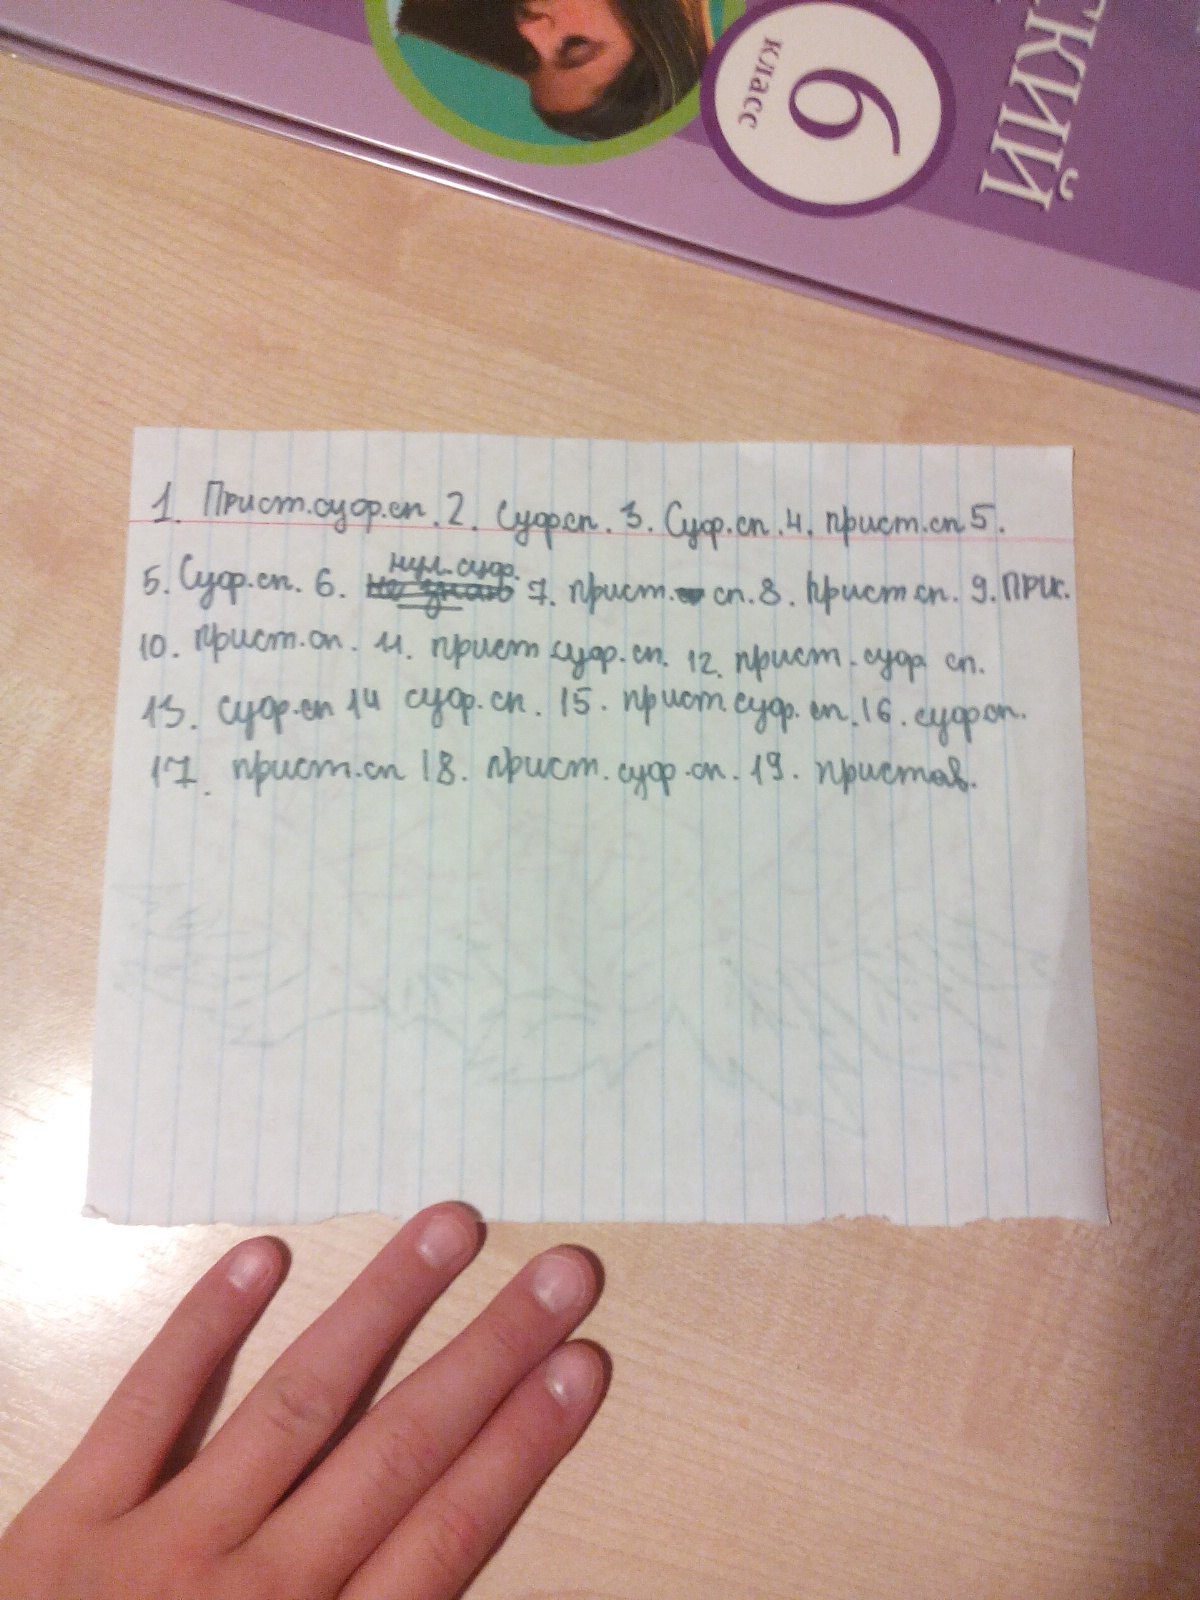 СКИЙ
6
класс
1. Прист.суф.сп. 2. Суф.сп. 3. Суф.сп. 4. прист.сп 5.
5. Суф.сп. 6. нул.суф. 7. прист. сп. 8. прист сп. 9. прис.
10. прист.сп. 11. прист суф.сп. 12. прист. суф сп.
13. суф.сп 14 суф.сп. 15. прист.суф.сп. 16. суф сп.
17. прист.сп 18. прист.суф.сп. 19. пристав.